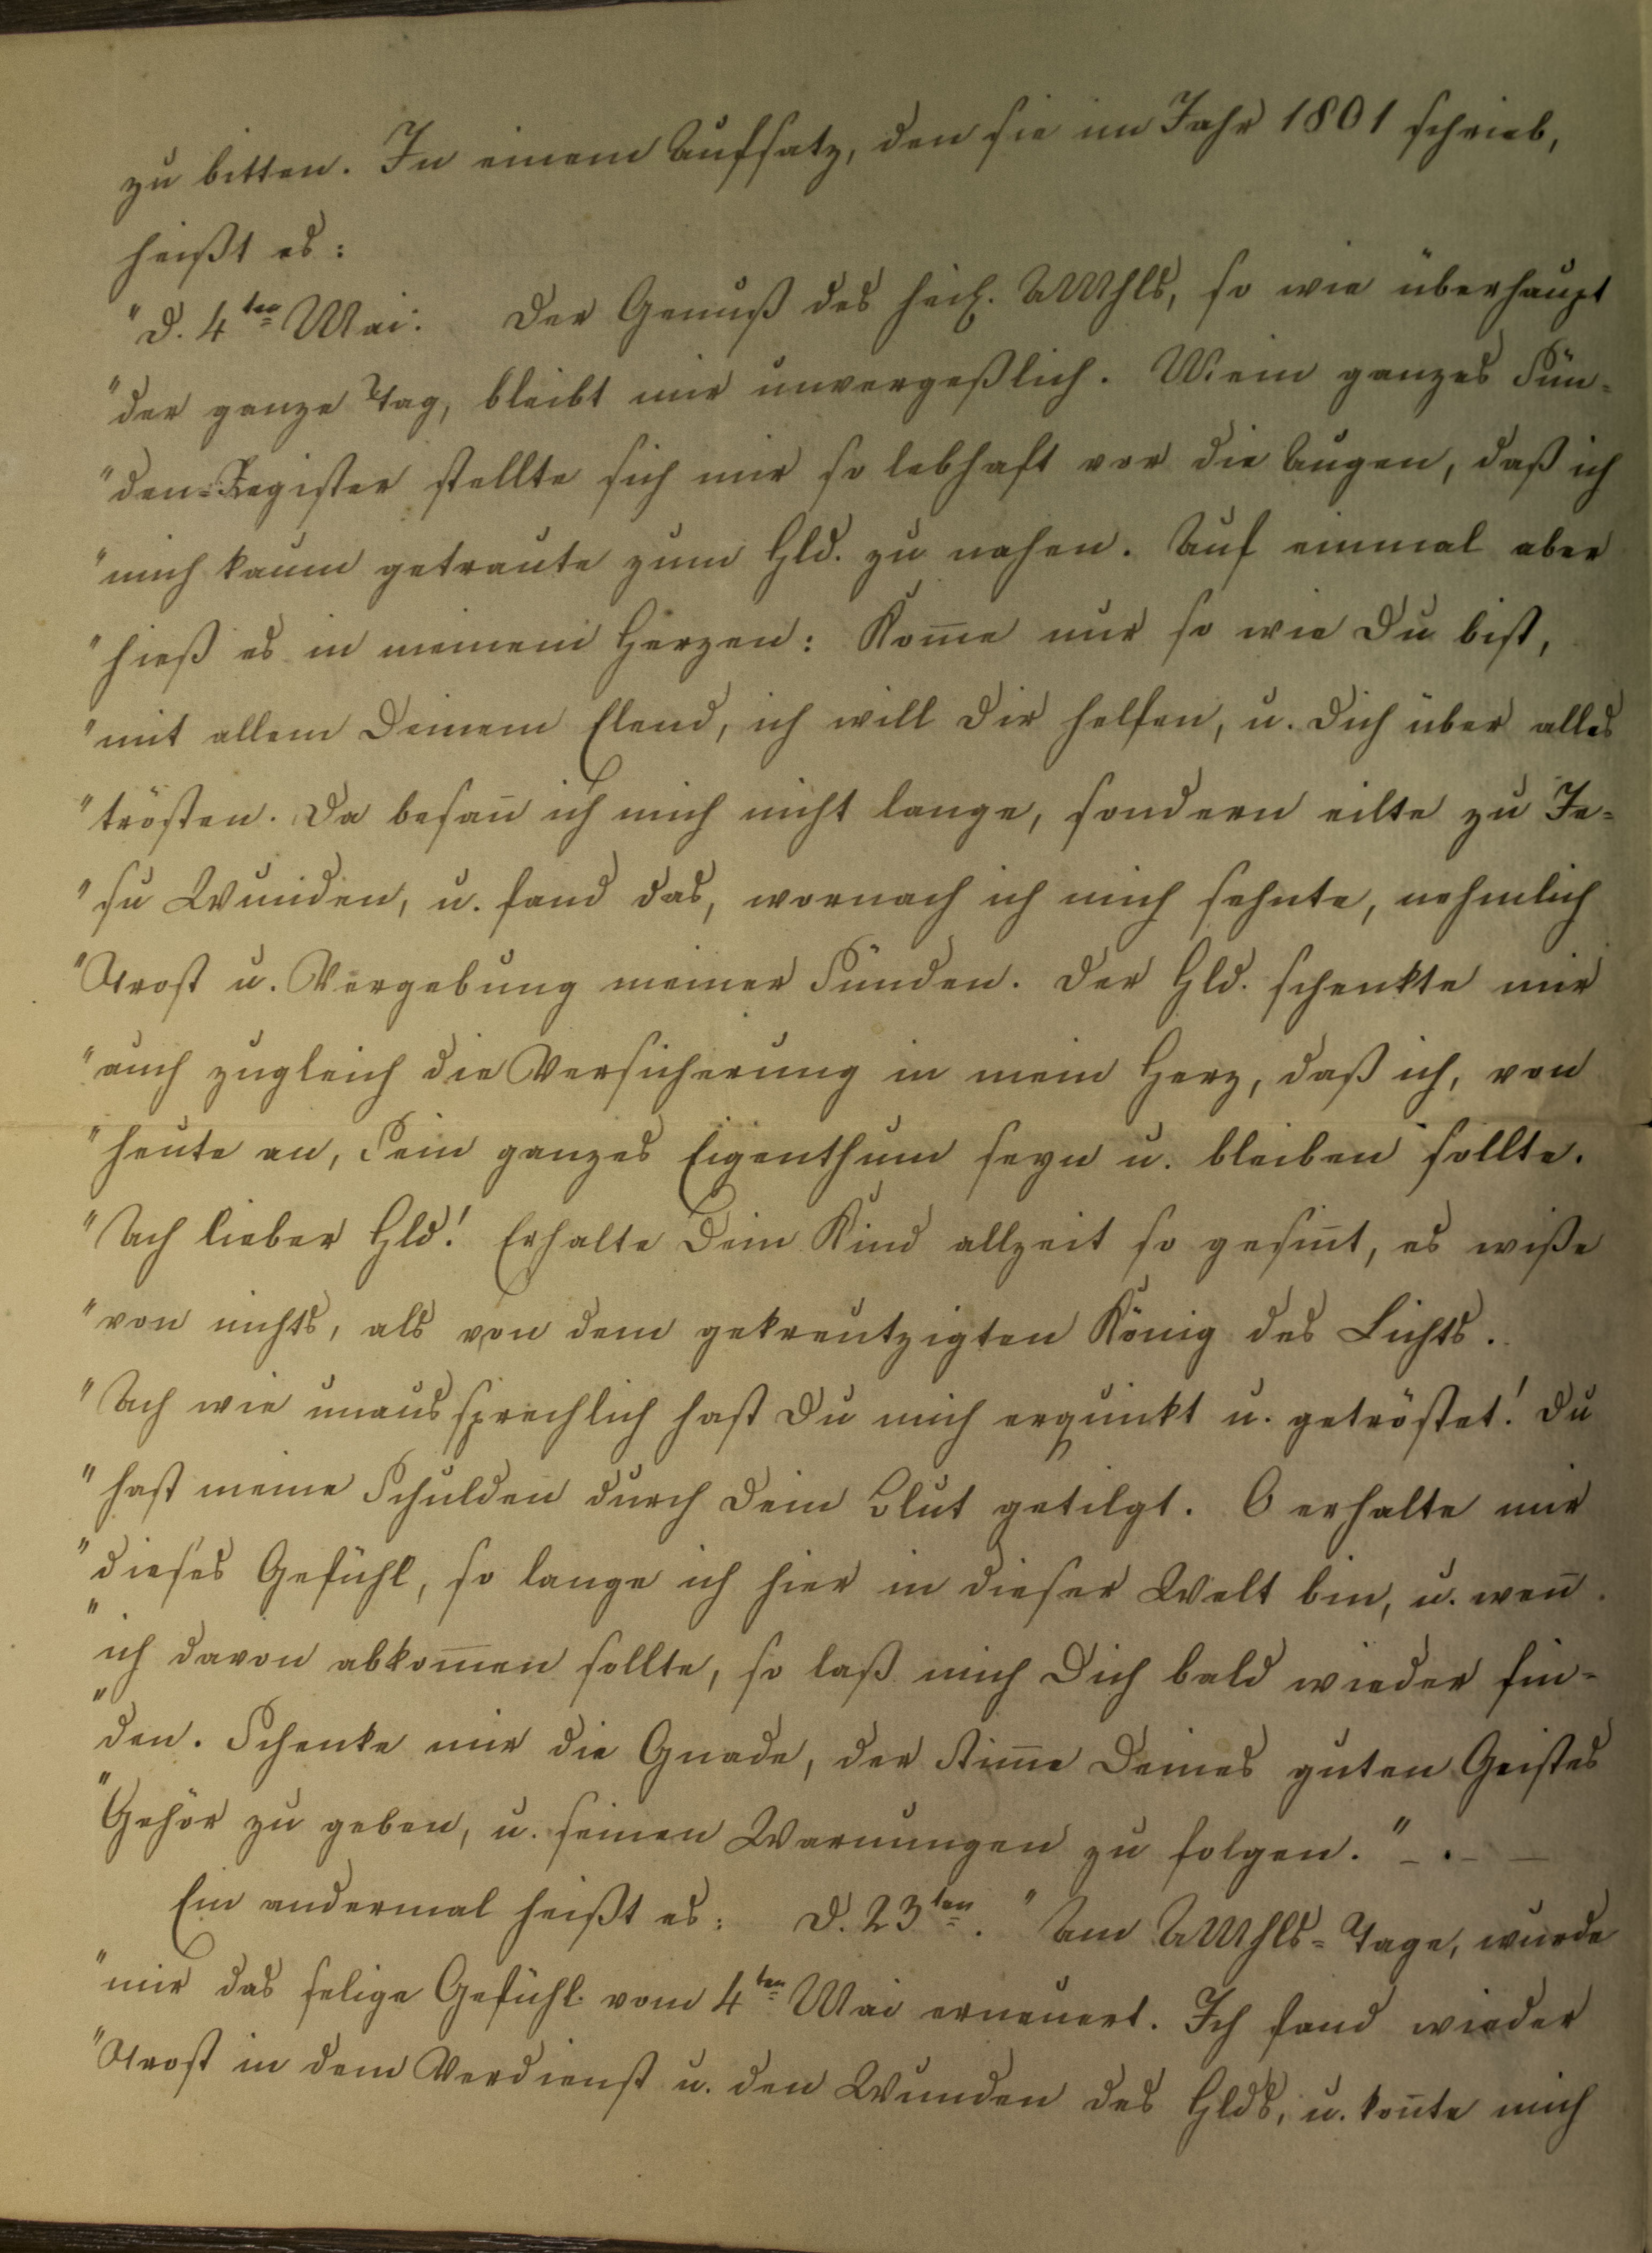 zu bitten. In einem Aufsatz, den sie im Jahr 1801 schrieb,
heißt es:
"D. 4ten Mai: Der Genuß des heil. AMhls, so wie überhaupt
"der ganze Tag, bleibt mir unvergeßlich. Mein ganzes Sün-
"den-Register stellte sich mir so lebhaft vor die Augen, daß ich
"mich kaum getraute zum Hld. zu nahen. Auf einmal aber
"hieß es in meinem Herzen: Kom̅e nur so wie Du bist,
"mit allem Deinem Elend, ich will Dir helfen, u. Dich über alles
"trösten. Da besan̅ ich mich nicht lange, sondern eilte zu Je-
"su Wunden, u. fand das, wornach ich mich sehnte, nehmlich
"Trost u. Vergebung meiner Sünden. Der Hld. schenkte mir
"auch zugleich die Versicherung in mein Herz, daß ich, von
"heute an, Sein ganzes Eigenthum seyn u. bleiben sollte.
"Ach lieber Hld! Erhalte Dein Kind allzeit so gesin̅t, es wiße
"von nichts, als von dem gekreutzigten König des Lichts.
"Ach wie unaussprechlich hast Du mich erquikt u. getröstet! Du
"hast meine Schulden durch Dein Blut getilgt. O erhalte mir
"dieses Gefühl, so lange ich hier in dieser Welt bin, u. wen̅
"ich davon abkom̅en sollte, so laß mich Dich bald wieder fin-
"den. Schenke mir die Gnade, der Stim̅e Deines guten Geistes
"Gehör zu geben, u. seinen Warnungen zu folgen." – . – –
Ein andermal heißt es: D. 23ten. "Am AMhls-Tage, wurde
"mir das selige Gefühl vom 4ten Mai erneuert. Ich fand wieder
"Trost in dem Verdienst u. den Wunden des Hlds, u. kon̅te mich